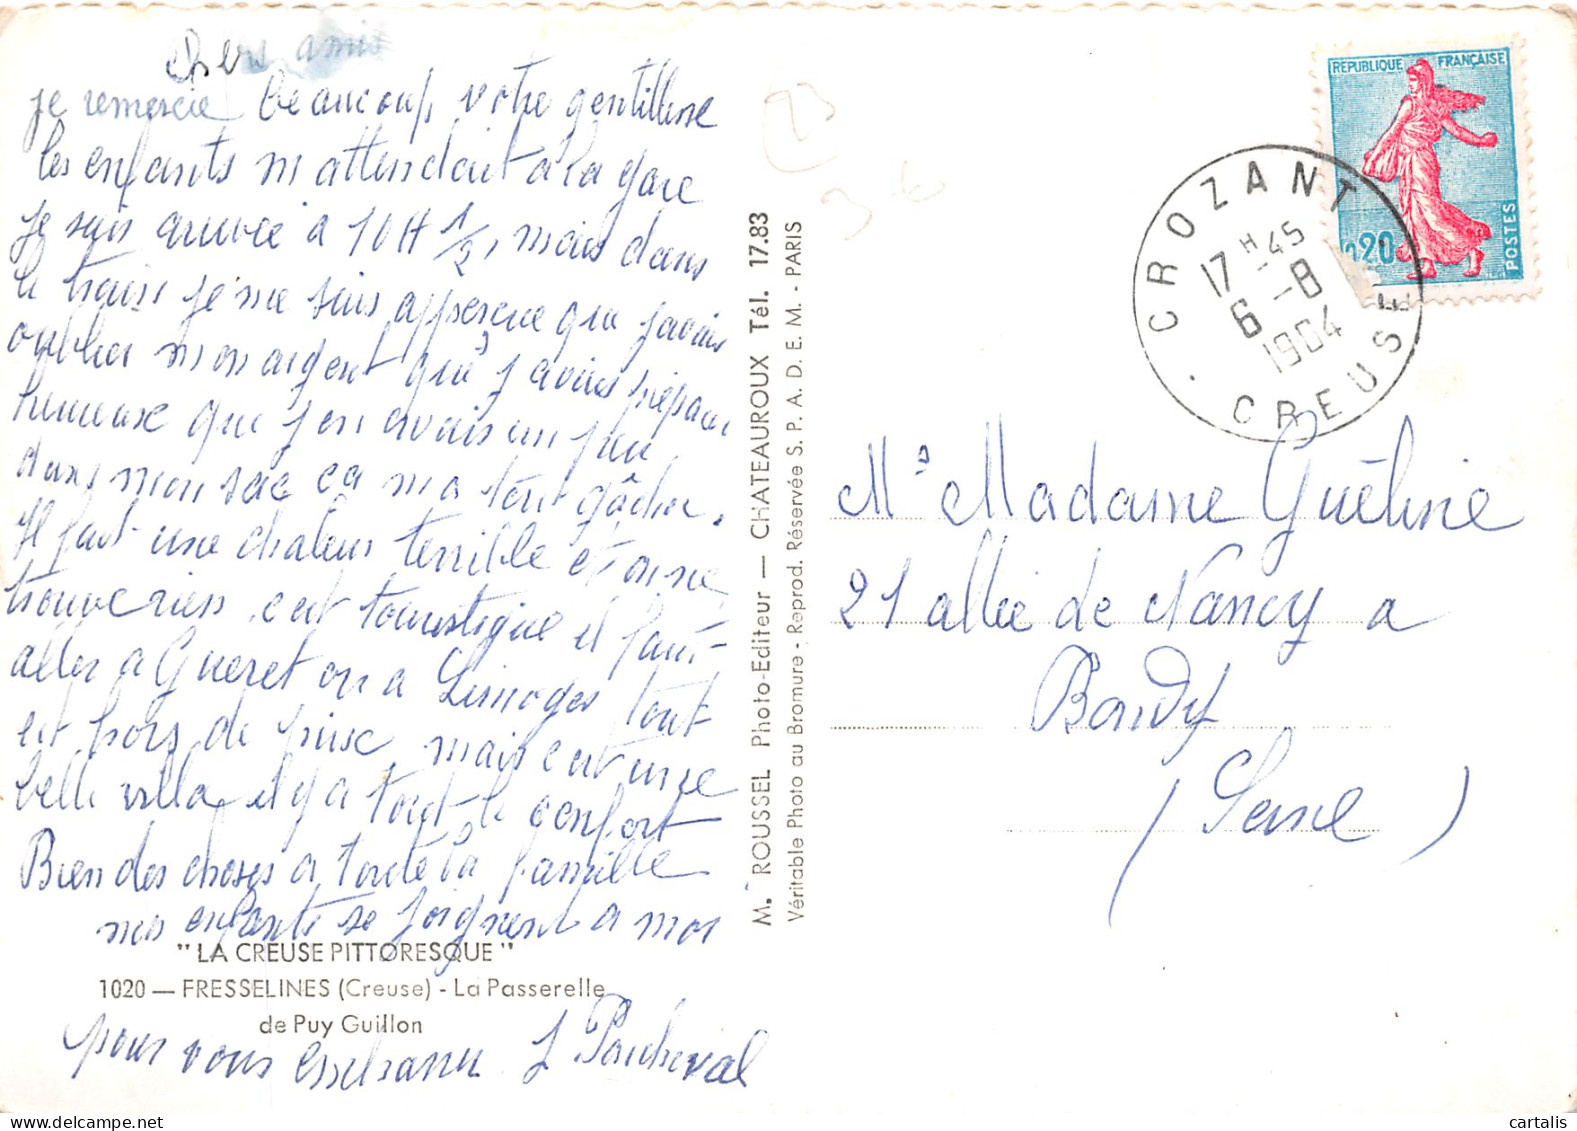 chers amis
je remercie beaucoup, votre gentillesse
les enfants m'attendait à la gare
je suis arrivée à 10 H 1/2, mais dans
le train je me suis apperçue que j'avais
oublier mon argent que j'avais préparer
heureuse que j'en avais un peu
dans mon sac ça m'a tout gâcher.
Il fait une chaleur terrible et on ne
trouve rien c'est touristique il faut
aller a Gueret ou a Limoges tout
est hors de prise, mais c'est une
belle villa, il y a tout le confort
Bien des choses a toute la famille
mes enfants se joignent a moi
pour vous
"LA CREUSE PITTORESQUE"
1020 — FRESSELINES (Creuse) - La Passerelle
de Puy Guillon
M. ROUSSEL Photo-Editeur — CHATEAUROUX Tél. 17.83
Véritable Photo au Bromure - Reprod. Réservée S. P. A. D. E. M. - PARIS
REPUBLIQUE FRANÇAISE
0,20
POSTES
CROZANT
17 H -45
6 -8
1964
CREUSE
Madame Guéline
21 allée de Nancy a
Bondy
(Seine)
cartalis